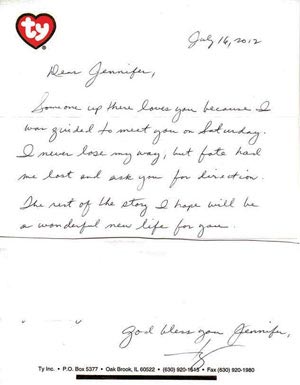 ty
July 16, 2012
Dear Jennifer,
Someone up there loves you because I
was guided to meet you on Saturday.
I never lose my way, but fate had
me lost and ask you for direction.
The rest of the story I hope will be
a wonderful new life for you.
God bless you Jennifer,
Ty
Ty Inc. • P.O. Box 5377 • Oak Brook, IL 60522 • (630) 920-1515 • Fax (630) 920-1980